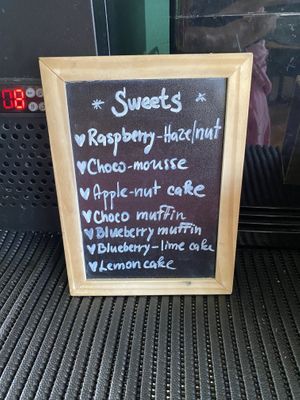 08
* Sweets *
♥Raspberry-Hazelnut
♥Choco-mousse
♥Apple-nut cake
♥Choco muffin
♥Blueberry muffin
♥Blueberry-lime cake
♥Lemon cake